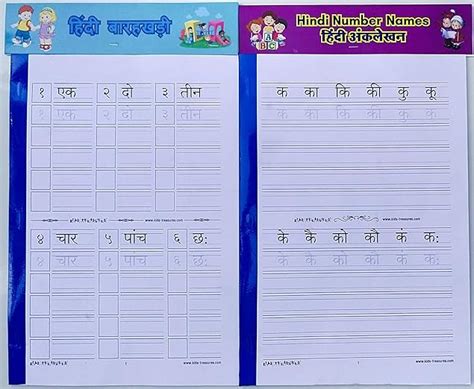 हिंदी बारहखड़ी
१ एक २ दो ३ तीन
१ एक २ दो ३ तीन
www.kids-treasures.com
४ चार ५ पांच ६ छ:
४ चार ५ पांच ६ छ:
1
www.kids-treasures.com
Hindi Number Names
हिंदी अंकलेखन
A
B C
क का कि की कु कू
क का कि की कु कू
www.kids-treasures.com
के कै को कौ कं क:
के कै को कौ कं क:
1
www.kids-treasures.com